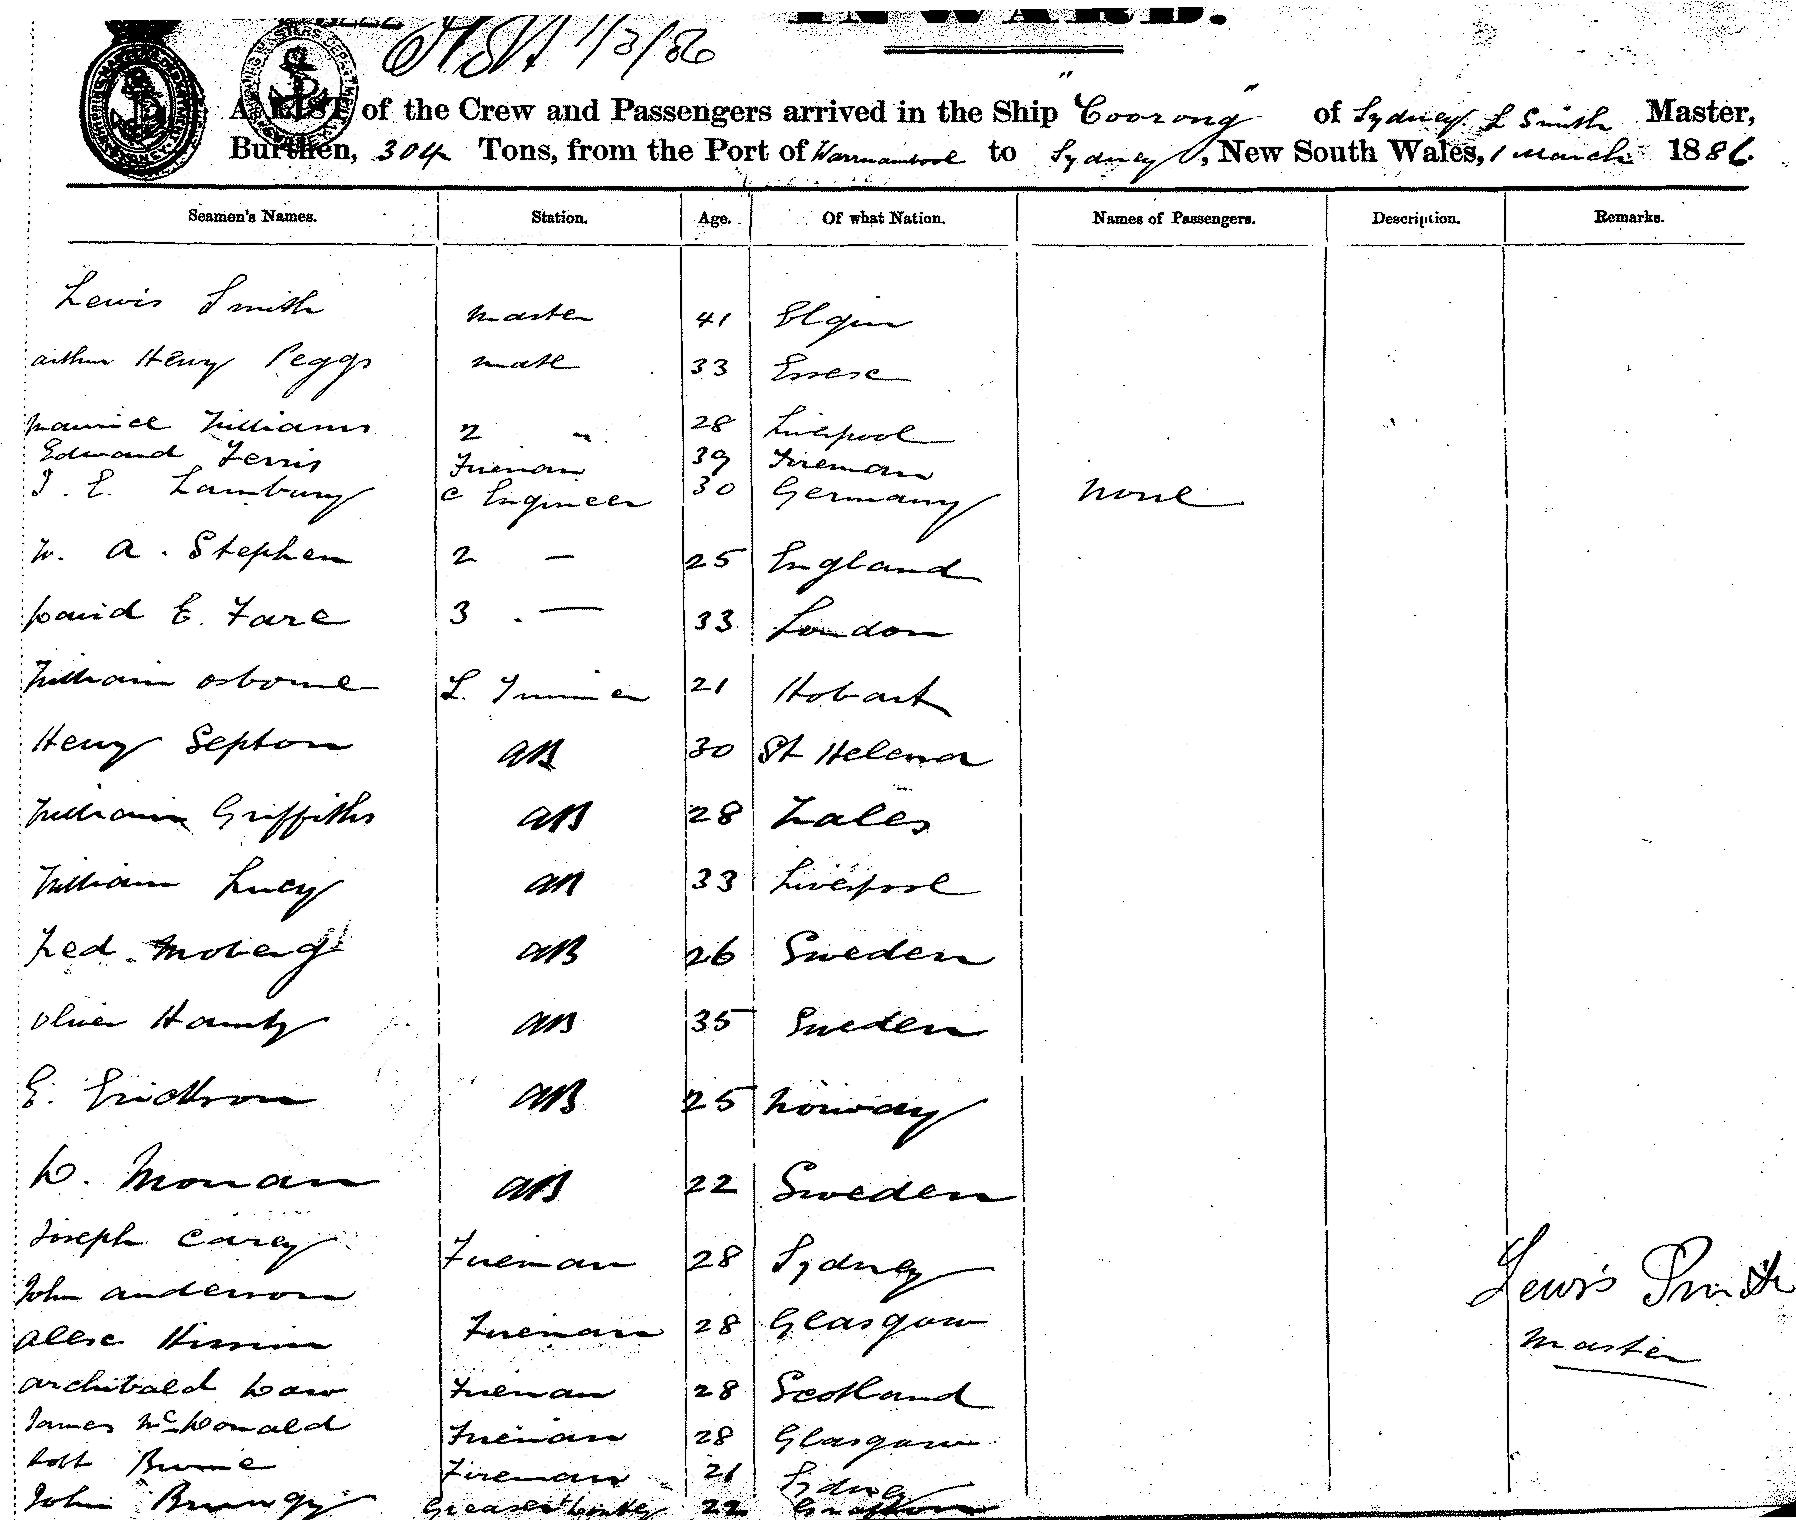 INWARD.
1/3/86
A LIST of the Crew and Passengers arrived in the Ship "Coorong" of Sydney L Smith Master,
Burthen, 304 Tons, from the Port of Warrnambool to Sydney, New South Wales, 1 March 1886
Seamen's Names. Station. Age. Of what Nation. Names of Passengers. Description. Remarks.
Lewis Smith Master 41 Elgin
Arthur Henry Peggs Mate 33 Essex
Maurice Williams 2 " 28 Liverpool
Edward Ferris Fireman 39 Fireman
J. E. Lambury C Engineer 30 Germany None
W. A. Stephen 2 — 25 England
David E. Fare 3 . — 33 London
William Osborne L. Trimmer 21 Hobart
Henry Septon AB 30 St Helena
William Griffiths AB 28 Wales
William Lucy AB 33 Liverpool
Fred. Moberg AB 26 Sweden
Oliver AB 35 Sweden
E. Erickson AB 25 Norway
D. AB 22 Sweden
Joseph Carey Fireman 28 Sydney
John Anderson
Alexe Fireman 28 Glasgow
Archibald Law Fireman 28 Scotland
James McDonald Fireman 28 Glasgow
Robt Fireman 21 Sydney
John Greaser 22 Grafton
Lewis Smith
Master